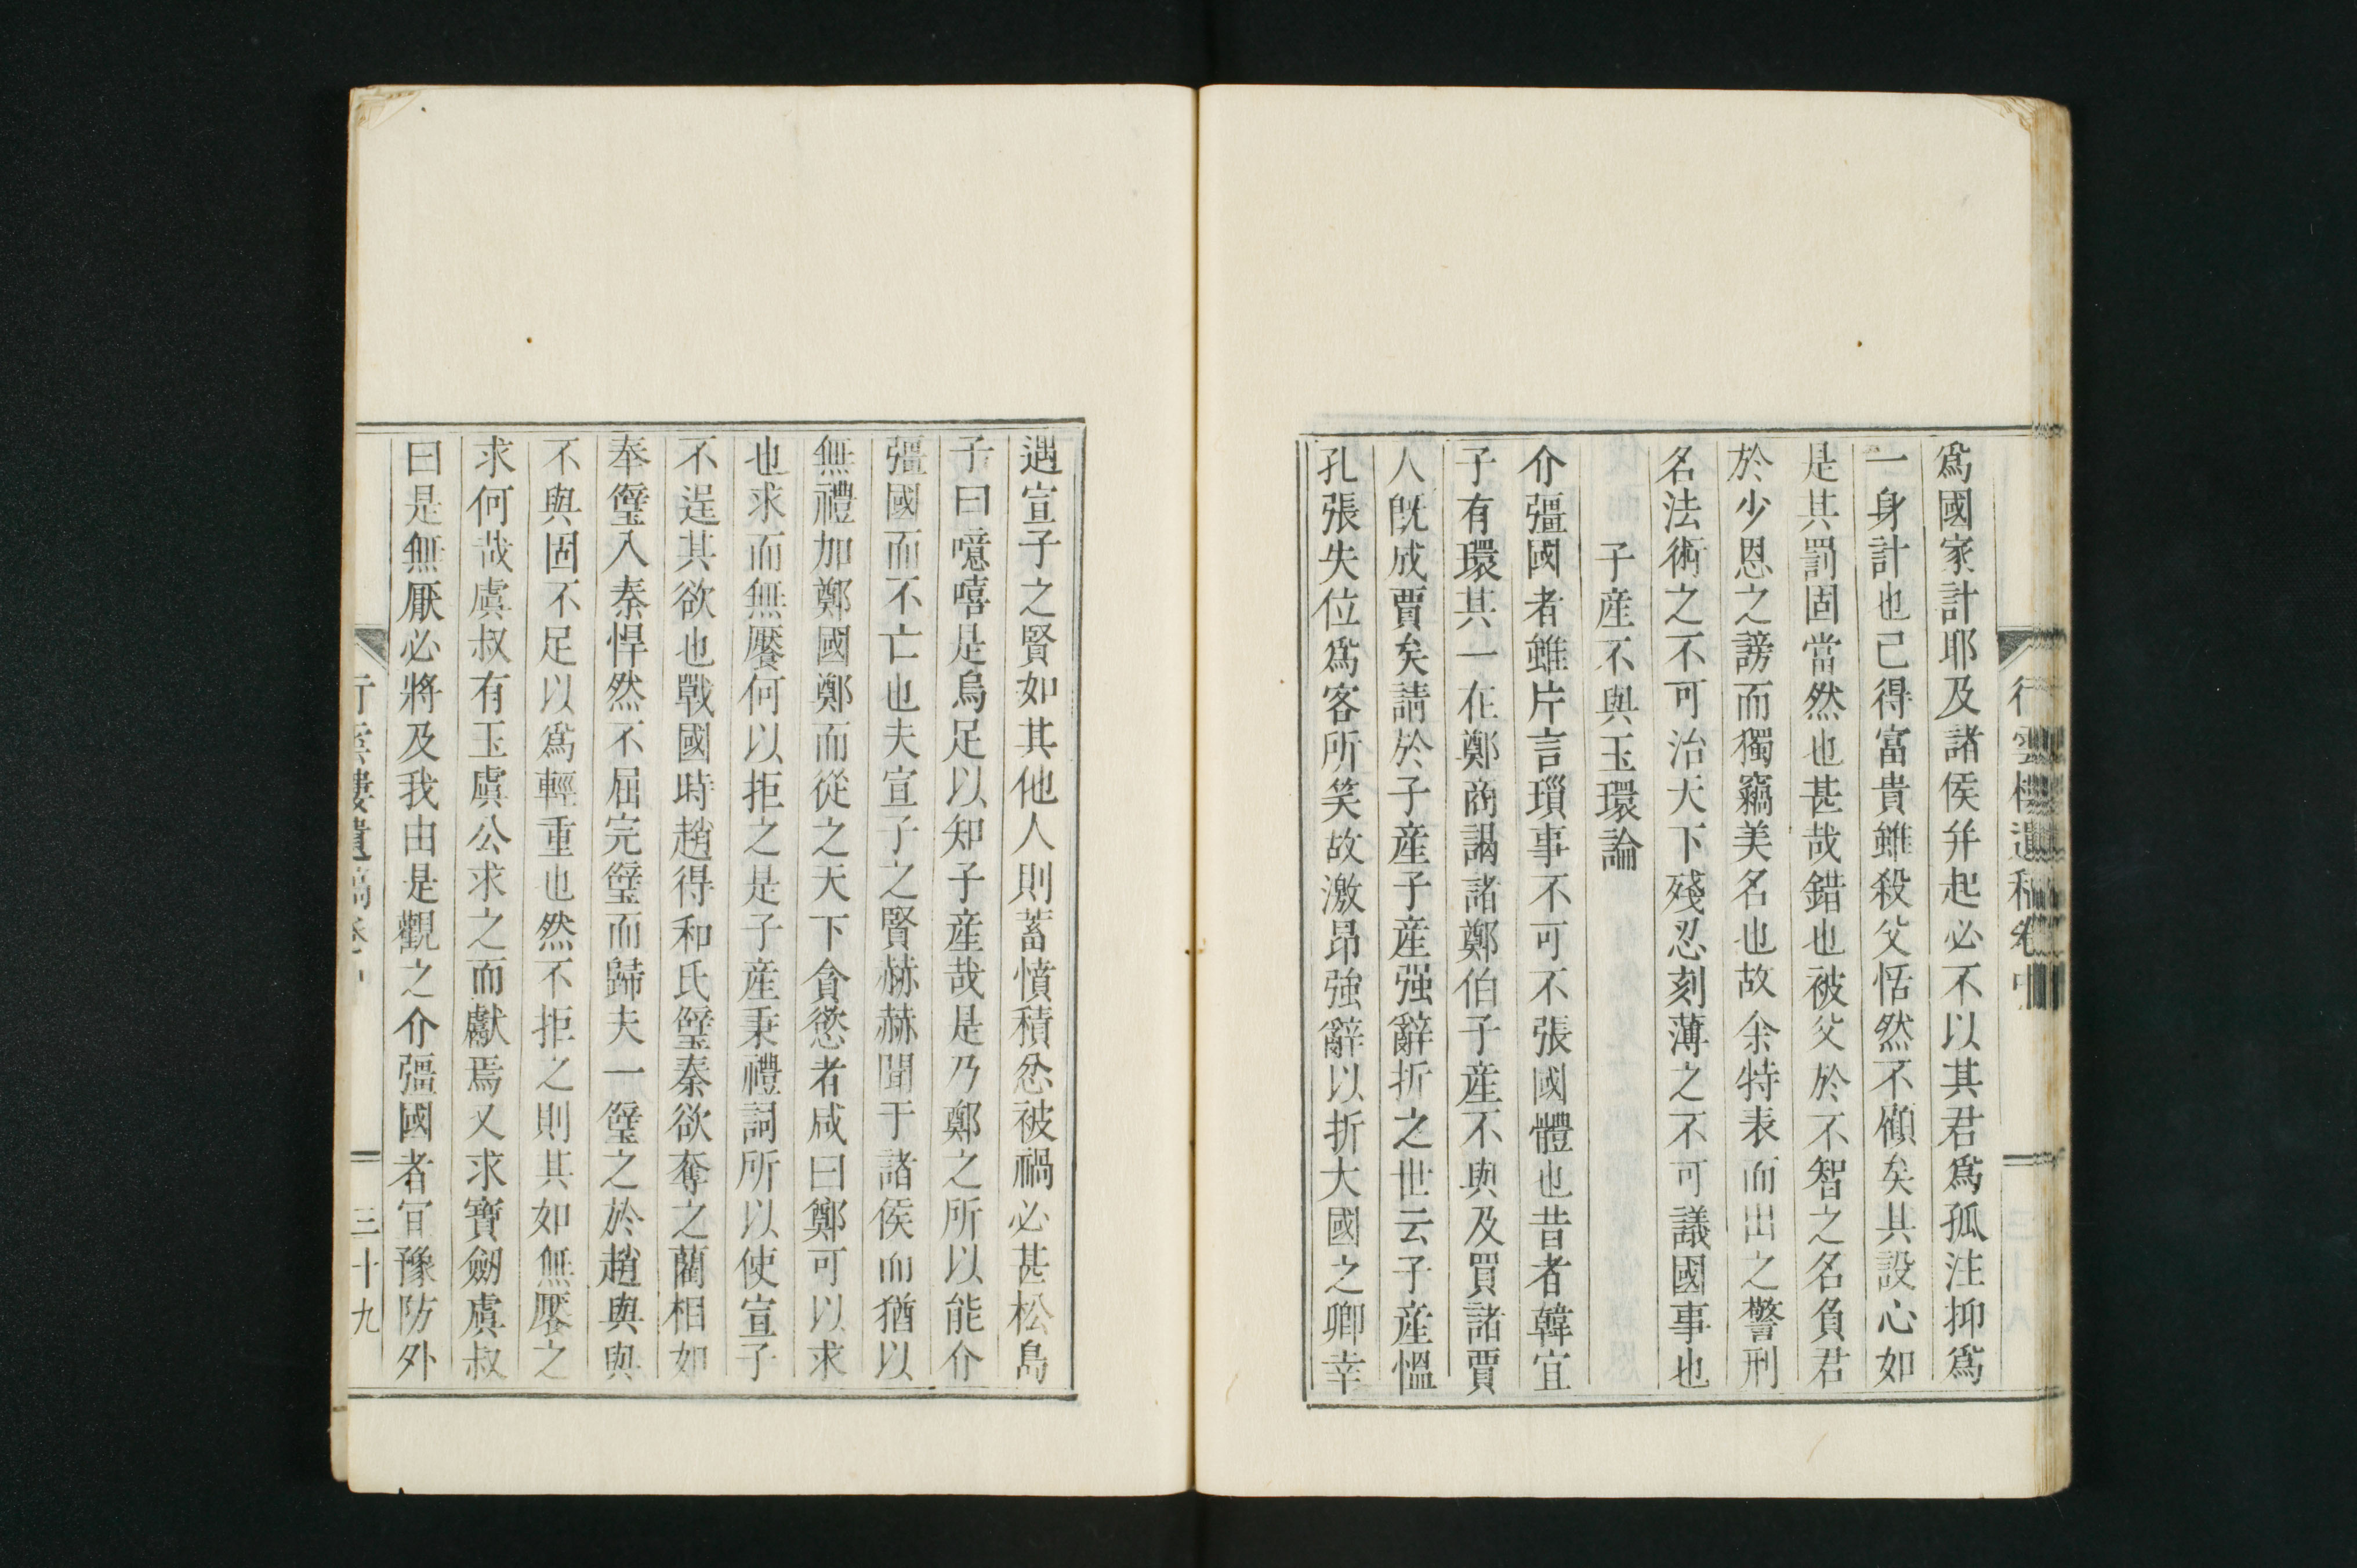 爲國家計耶及諸侯幷起必不以其君爲孤注抑爲
一身計也己得富貴雖殺父恬然不顧矣其設心如
是其罰固當然也甚哉錯也被父於不智之名負君
於少恩之謗而獨竊美名也故余特表而出之警刑
名法術之不可治天下殘忍刻薄之不可議國事也
子産不與玉環論
介彊國者雖片言瑣事不可不張國體也昔者韓宣
子有環其一在鄭商謁諸鄭伯子産不與及買諸賈
人既成賈矣請於子産子産强辭折之世云子産慍
孔張失位爲客所笑故激昂強辭以折大國之卿幸
遇宣子之賢如其他人則蓄憤積忿被禍必甚松島
子曰噫嘻是烏足以知子産哉是乃鄭之所以能介
彊國而不亡也夫宣子之賢赫赫聞于諸侯而猶以
無禮加鄭國鄭而從之天下貪慾者咸曰鄭可以求
也求而無饜何以拒之是子産秉禮詞所以使宣子
不逞其欲也戰國時趙得和氏璧秦欲奪之藺相如
奉璧入秦悍然不屈完璧而歸夫一璧之於趙與與
不與固不足以爲輕重也然不拒之則其如無饜之
求何哉虞叔有玉虞公求之而獻焉又求寶劒虞叔
曰是無厭必將及我由是觀之介彊國者宜豫防外
行雲樓遺稿卷中
三十九